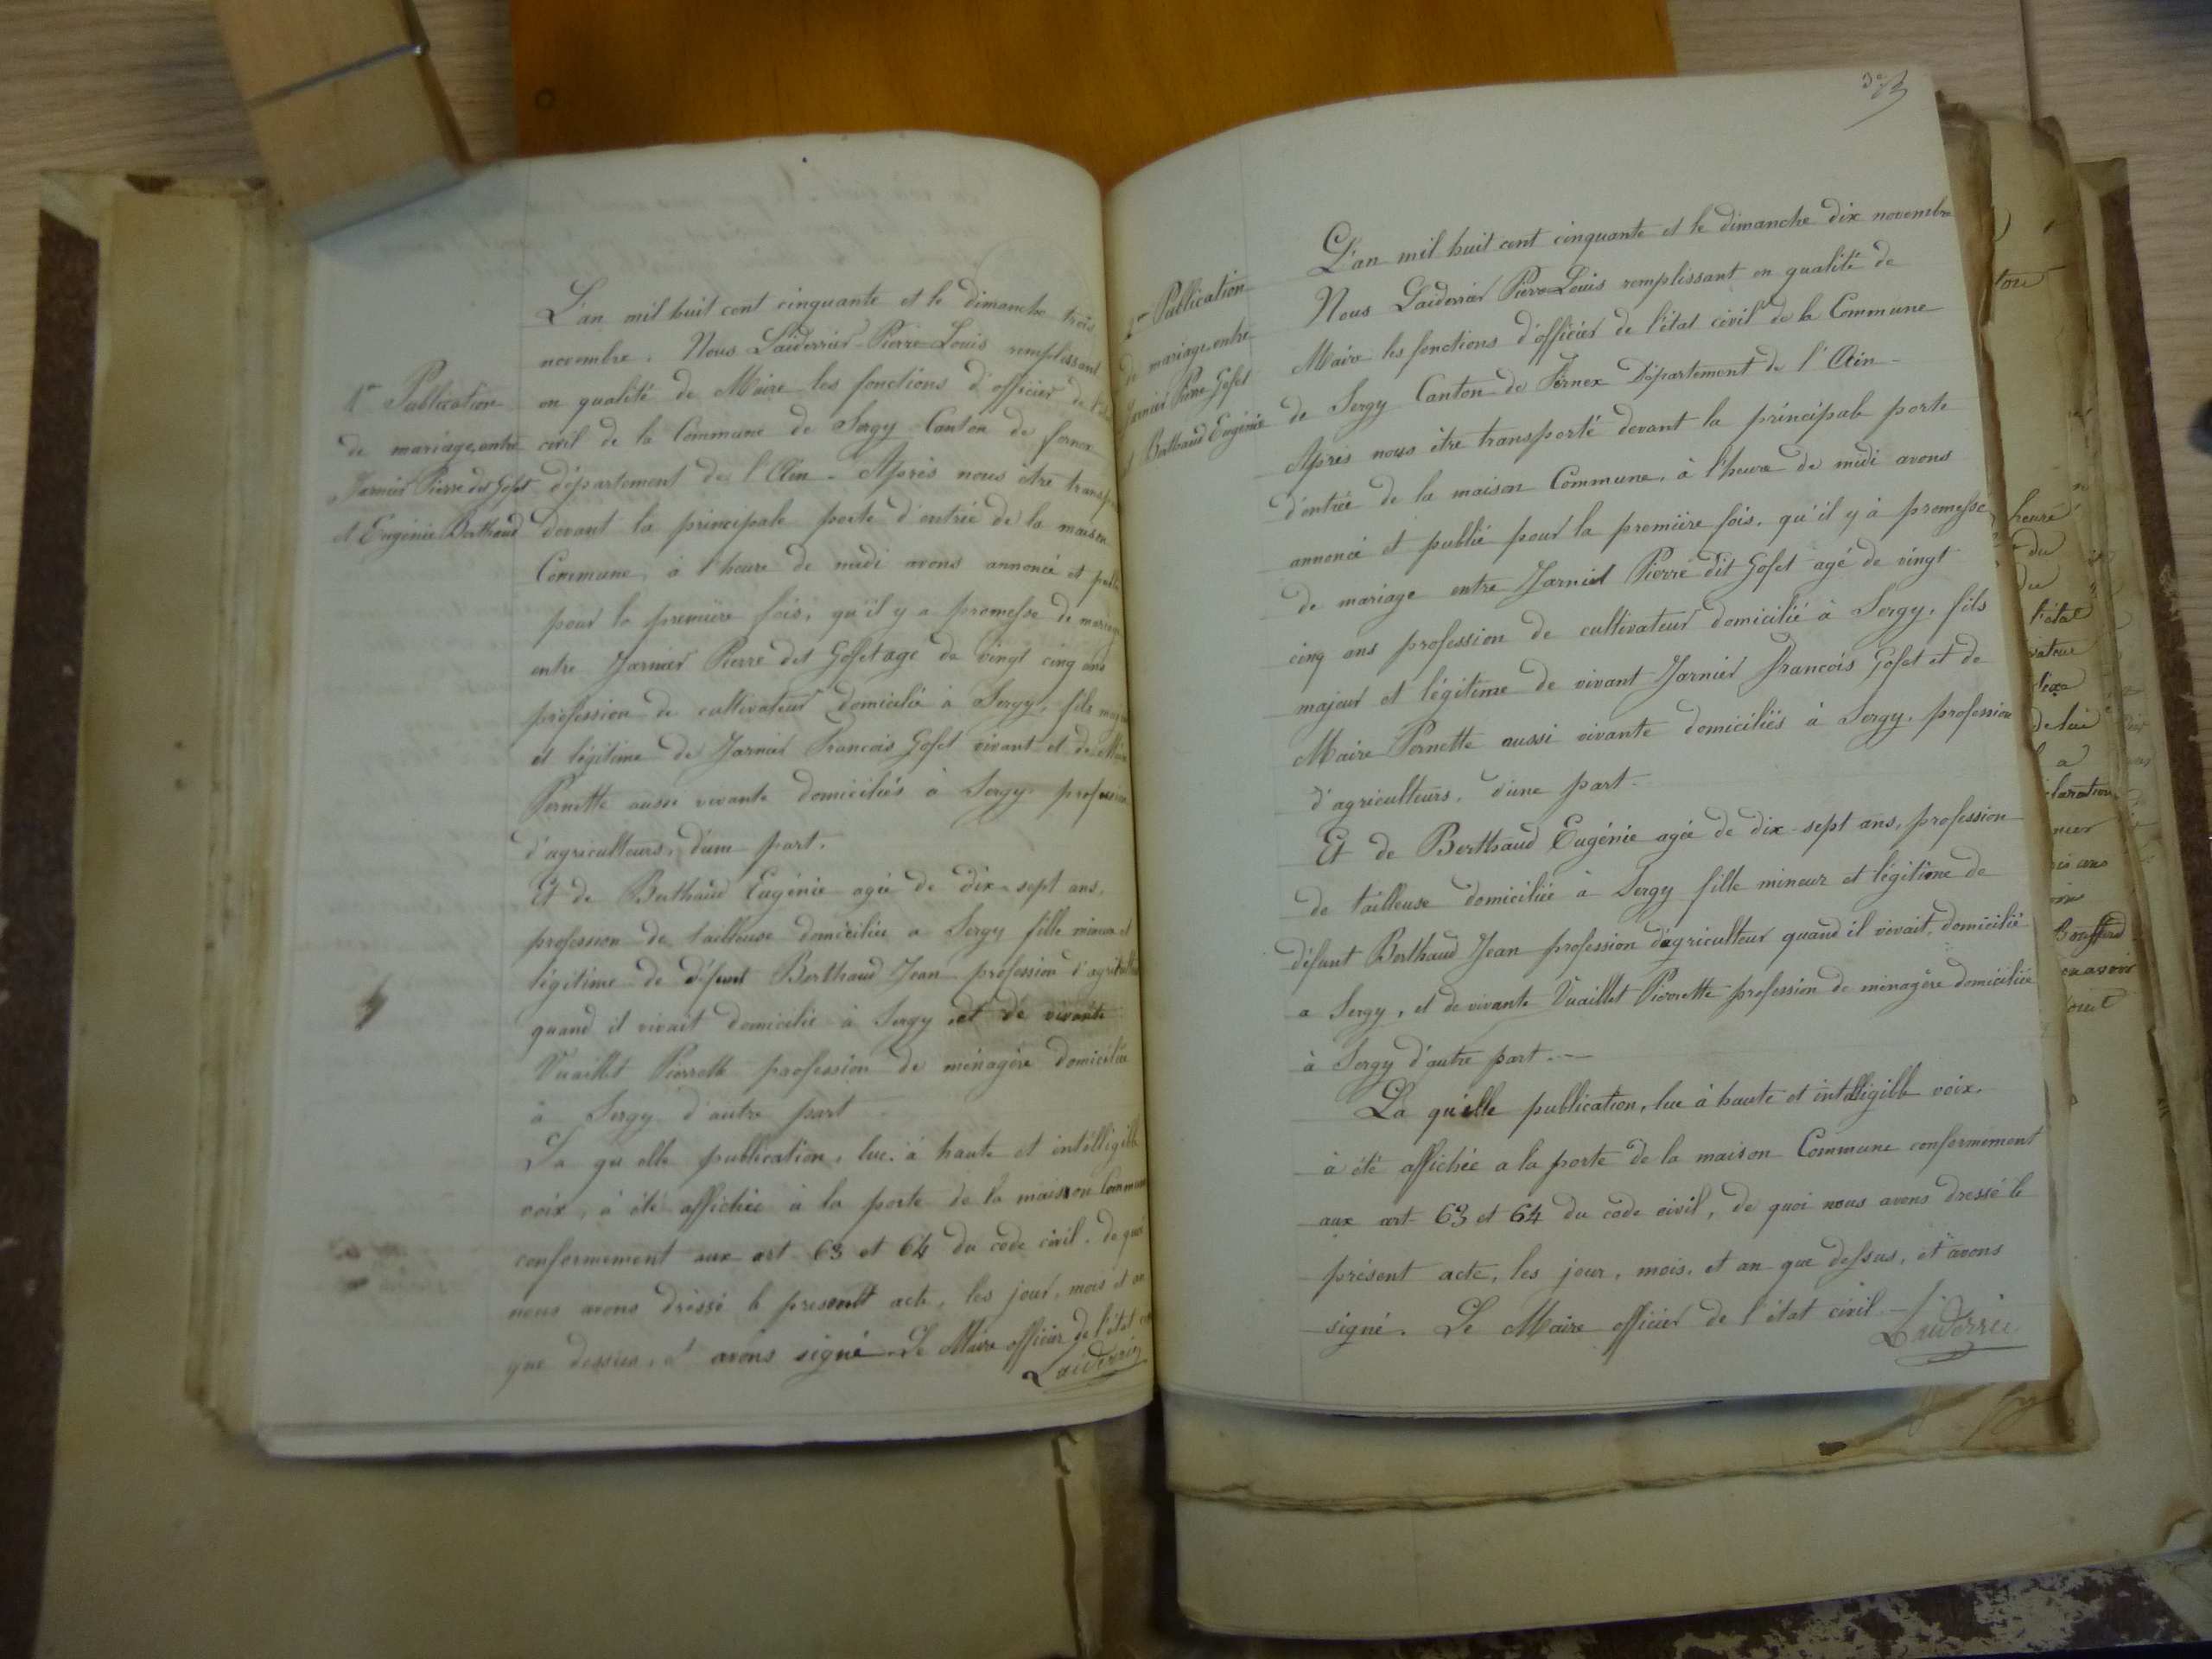 L'an mil huit cent cinquante et le dimanche trois
novembre. Nous Laiderrier Pierre Louis remplissant
en qualité de Maire les fonctions d'officier de
civil de la Commune de Sergy Canton de fernex
département de l'Ain. Après nous être
devant la principale porte d'entrée de la maison
Commune, à l'heure de midi avons annoncé et
pour la première fois, qu'il y a promesse de
entre Jarnier Pierre dit Gofet agé de vingt cinq ans
profession de cultivateur domicilié à Sergy, fils
et légitime de Jarnier François Gofet vivant et de
Pernette aussi vivante domiciliés à Sergy profession
d'agriculteurs, d'une part.
Et de Berthaud Eugénie agée de dix-sept ans,
profession de tailleuse domiciliée a Sergy fille mineur et
légitime de défunt Berthaud Jean profession
quand il vivait domicilié à Sergy et de vivante
Vuaillet Pierrette profession de ménagère domiciliée
à Sergy d'autre part
La qu'elle publication, lue à haute et intelligible
voix, à été affichée à la porte de la maison
conformement aux art 63 et 64 du code civil. de quoi
nous avons dressé le present acte, les jour, mois et an
que dessus, et avons signé Le Maire officier de l'état
Laiderrier
1re Publication
de mariage, entre
Jarnier Pierre dit Gofet
et Eugénie Berthaud
Publication
de mariage, entre
Jarnier Pierre Gofet
et Berthaud Eugénie
L'an mil huit cent cinquante et le dimanche dix novembre
Nous Laiderrier Pierre Louis remplissant en qualité de
Maire les fonctions d'officier de l'état civil de la Commune
de Sergy Canton de Fernex Département de l'Ain
Apres nous être transporté devant la principale porte
d'entrée de la maison Commune, à l'heure de midi avons
annoncé et publié pour la première fois, qu'il y à promesse
de mariage entre Jarnier Pierre dit Gofet agé de vingt
cinq ans profession de cultivateur domicilié à Sergy, fils
majeur et légitime de vivant Jarnier François Gofet et de
Maire Pernette aussi vivante domiciliés à Sergy, profession
d'agriculteurs, d'une part.
Et de Berthaud Eugénie agée de dix-sept ans, profession
de tailleuse domiciliée à Sergy fille mineur et légitime de
défunt Berthaud Jean profession d'agriculteur quand il vivait, domicilié
a Sergy, et de vivante Vuaillet Pierrette profession de ménagère domiciliée
à Sergy d'autre part.
La qu'elle publication, lue à haute et intelligible voix.
à été affichée a la porte de la maison Commune conformement
aux art 63 et 64 du code civil, de quoi nous avons dressé le
présent acte, les jour, mois, et an que dessus, et avons
signé. Le Maire officier de l'état civil.
Laiderrier
heure
du
du
l'état